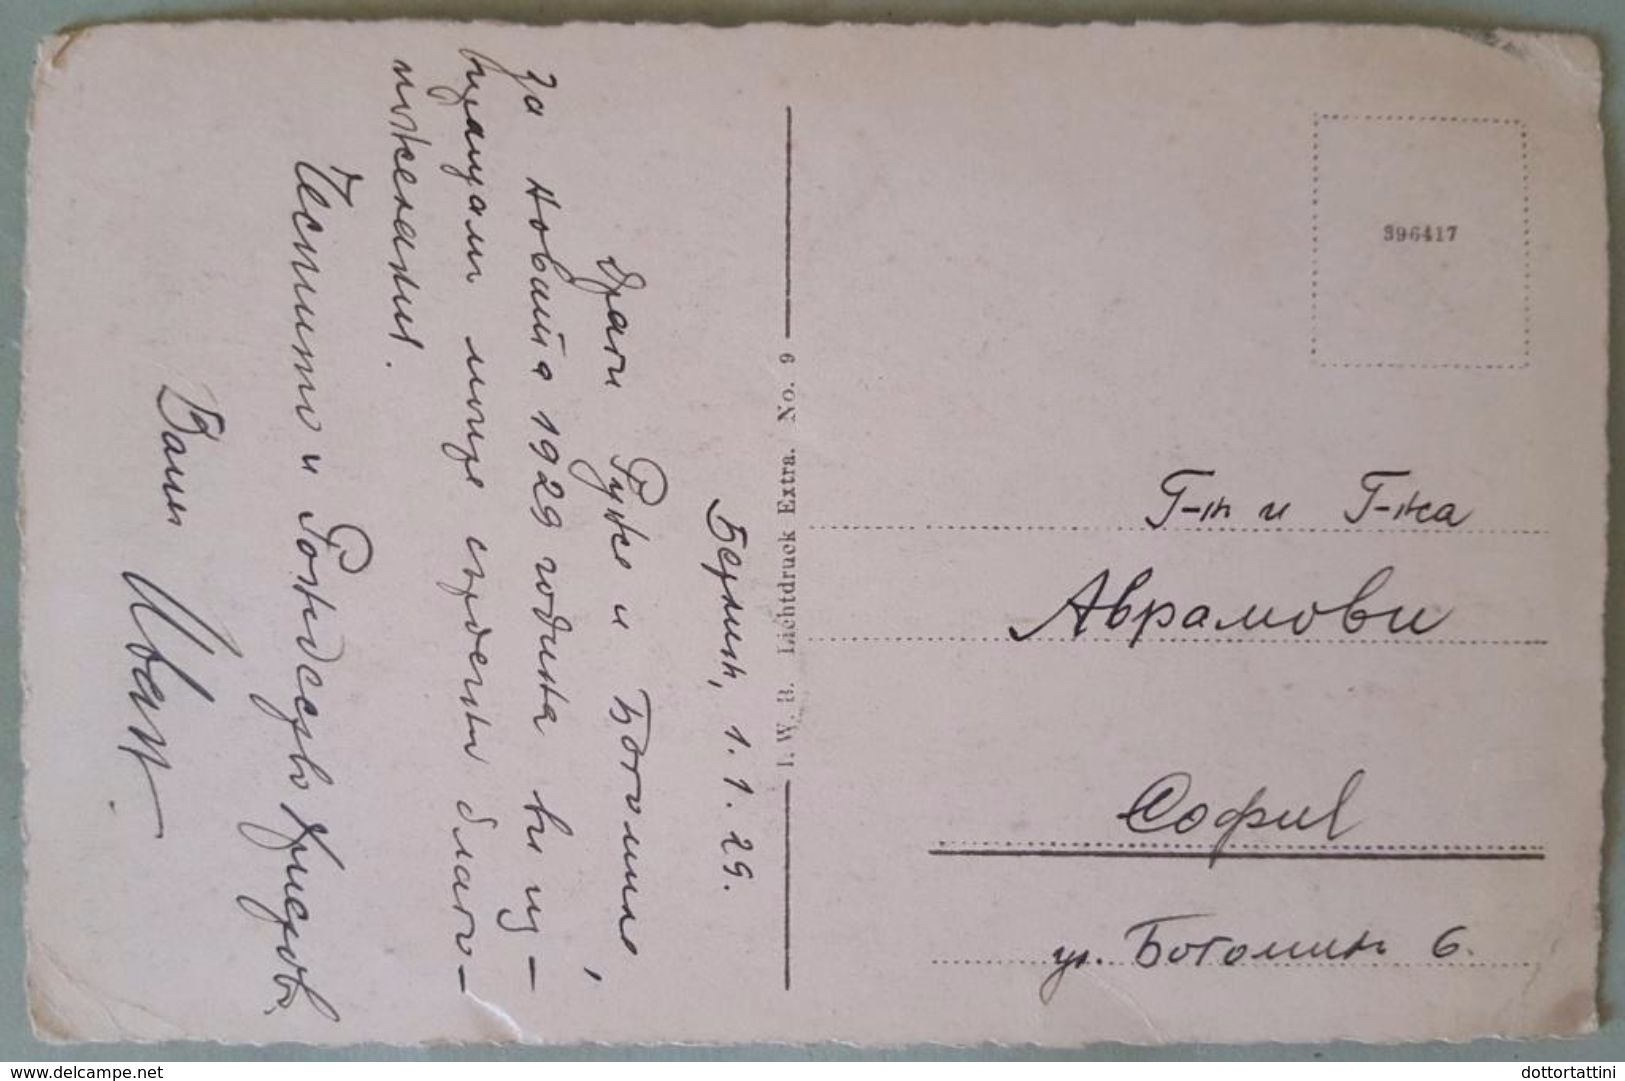 Берлин, 1.1.29.
Драги Руже и Богомиле,
За новата 1929 година ви из-
пращам моите сърдечни благо-
пожелания.
Честито и Рождество Христово.
Ваш Иван.
L.W.B. Lichtdruck Extra. No. 9
396417
Г-н и Г-жа
Аврамови
София
ул. Богомил 6.
www.delcampe.net
dottortattini